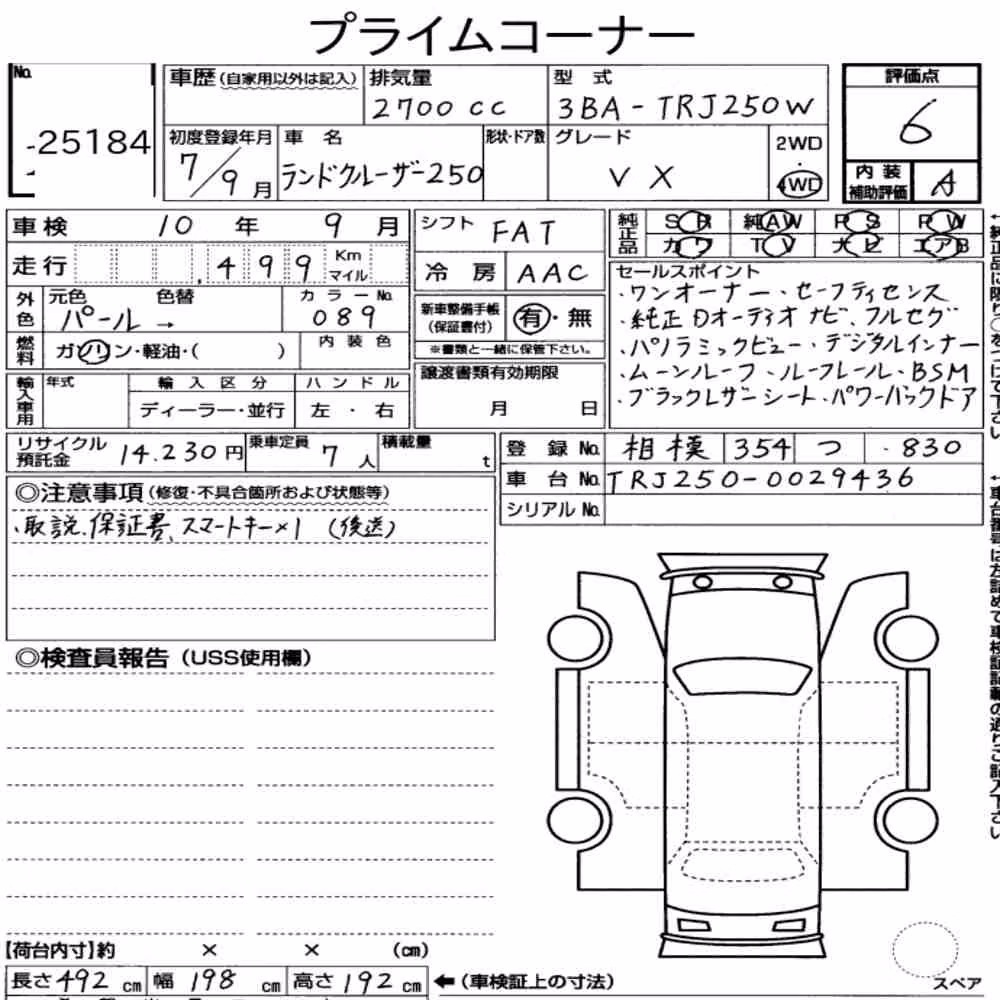 プライムコーナー
No.
-25184
車歴(自家用以外は記入) 排気量 型式 評価点
2700cc 3BA-TRJ250W 6
初度登録年月 車名 形状・ドア数 グレード 2WD・4WD
7/9月 ランドクルーザー250 VX
内装補助評価 A
車検 10年 9月
シフト FAT
純正品 SR 純AW PS PW
カワ TV ナビ エアB
走行 ,499 Km マイル
冷房 AAC
外色 元色 色替 カラーNo.
パール→ 089
新車整備手帳(保証書付) 有・無
※書類と一緒に保管下さい。
燃料 ガソリン・軽油・( ) 内装色
セールスポイント
・ワンオーナー・セーフティセンス
・純正Dオーディオナビ、フルセグ
・パノラミックビュー・デジタルインナー
・ムーンルーフ・ルーフレール・BSM
・ブラックレザーシート・パワーバックドア
輸入車用 年式 輸入区分 ハンドル
ディーラー・並行 左・右
譲渡書類有効期限
月 日
リサイクル預託金 14.230円 乗車定員 7人 積載量 t
登録No. 相模 354 つ ・830
車台No. TRJ250-0029436
シリアルNo.
◎注意事項(修復・不具合箇所および状態等)
・取説、保証書、スマートキー×1 (後送)
◎検査員報告(USS使用欄)
【荷台内寸】約 × × (cm)
長さ492cm 幅198cm 高さ192cm ←(車検証上の寸法)
スペア